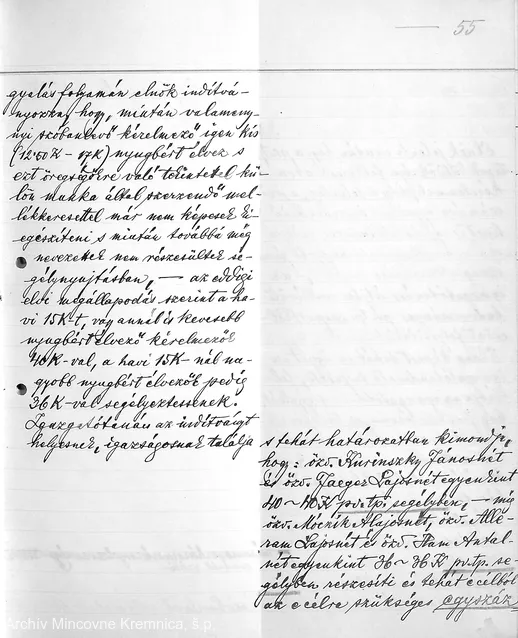 55
gyalás folyamán elnök indítvá-
nyozza, hogy, miután valameny-
nyi szóbanlevő kérelmező igen kis
(12·50K – 17K) nyugbért élvez s
ezt öregségökre való tekintettel kü-
lön munka által szerzendő mel-
lékkeresettel már nem képesek ki-
egészíteni s miután továbbá még
nevezettek nem részesültek se-
gélynyujtásban, — az eddigi
elvi megállapodás szerint a ha-
vi 15K-t, vagy annál is kevesebb
nyugbért élvező kérelmezők
40K-val, a havi 15K-nál na-
gyobb nyugbért élvezők pedig
36K-val segélyeztessenek.
Igazgatótanács az indítványt
helyesnek, igazságosnak találja
s tehát határozatban kimondja,
hogy: özv. Kurinszky Jánosnét
és özv. Jaeger Lajosnét egyenkint
40 ~ 40K pr.tp. segélyben, — míg
özv. Móczik Alajosnét, özv. Alle-
ram Lajosnét és özv. Antal-
nét egyenkint 36 ~ 36K pr.tp. se-
gélyben részesíti és tehát e célból
az e célra szükséges egyszáz
Archív Mincovne Kremnica, š.p.